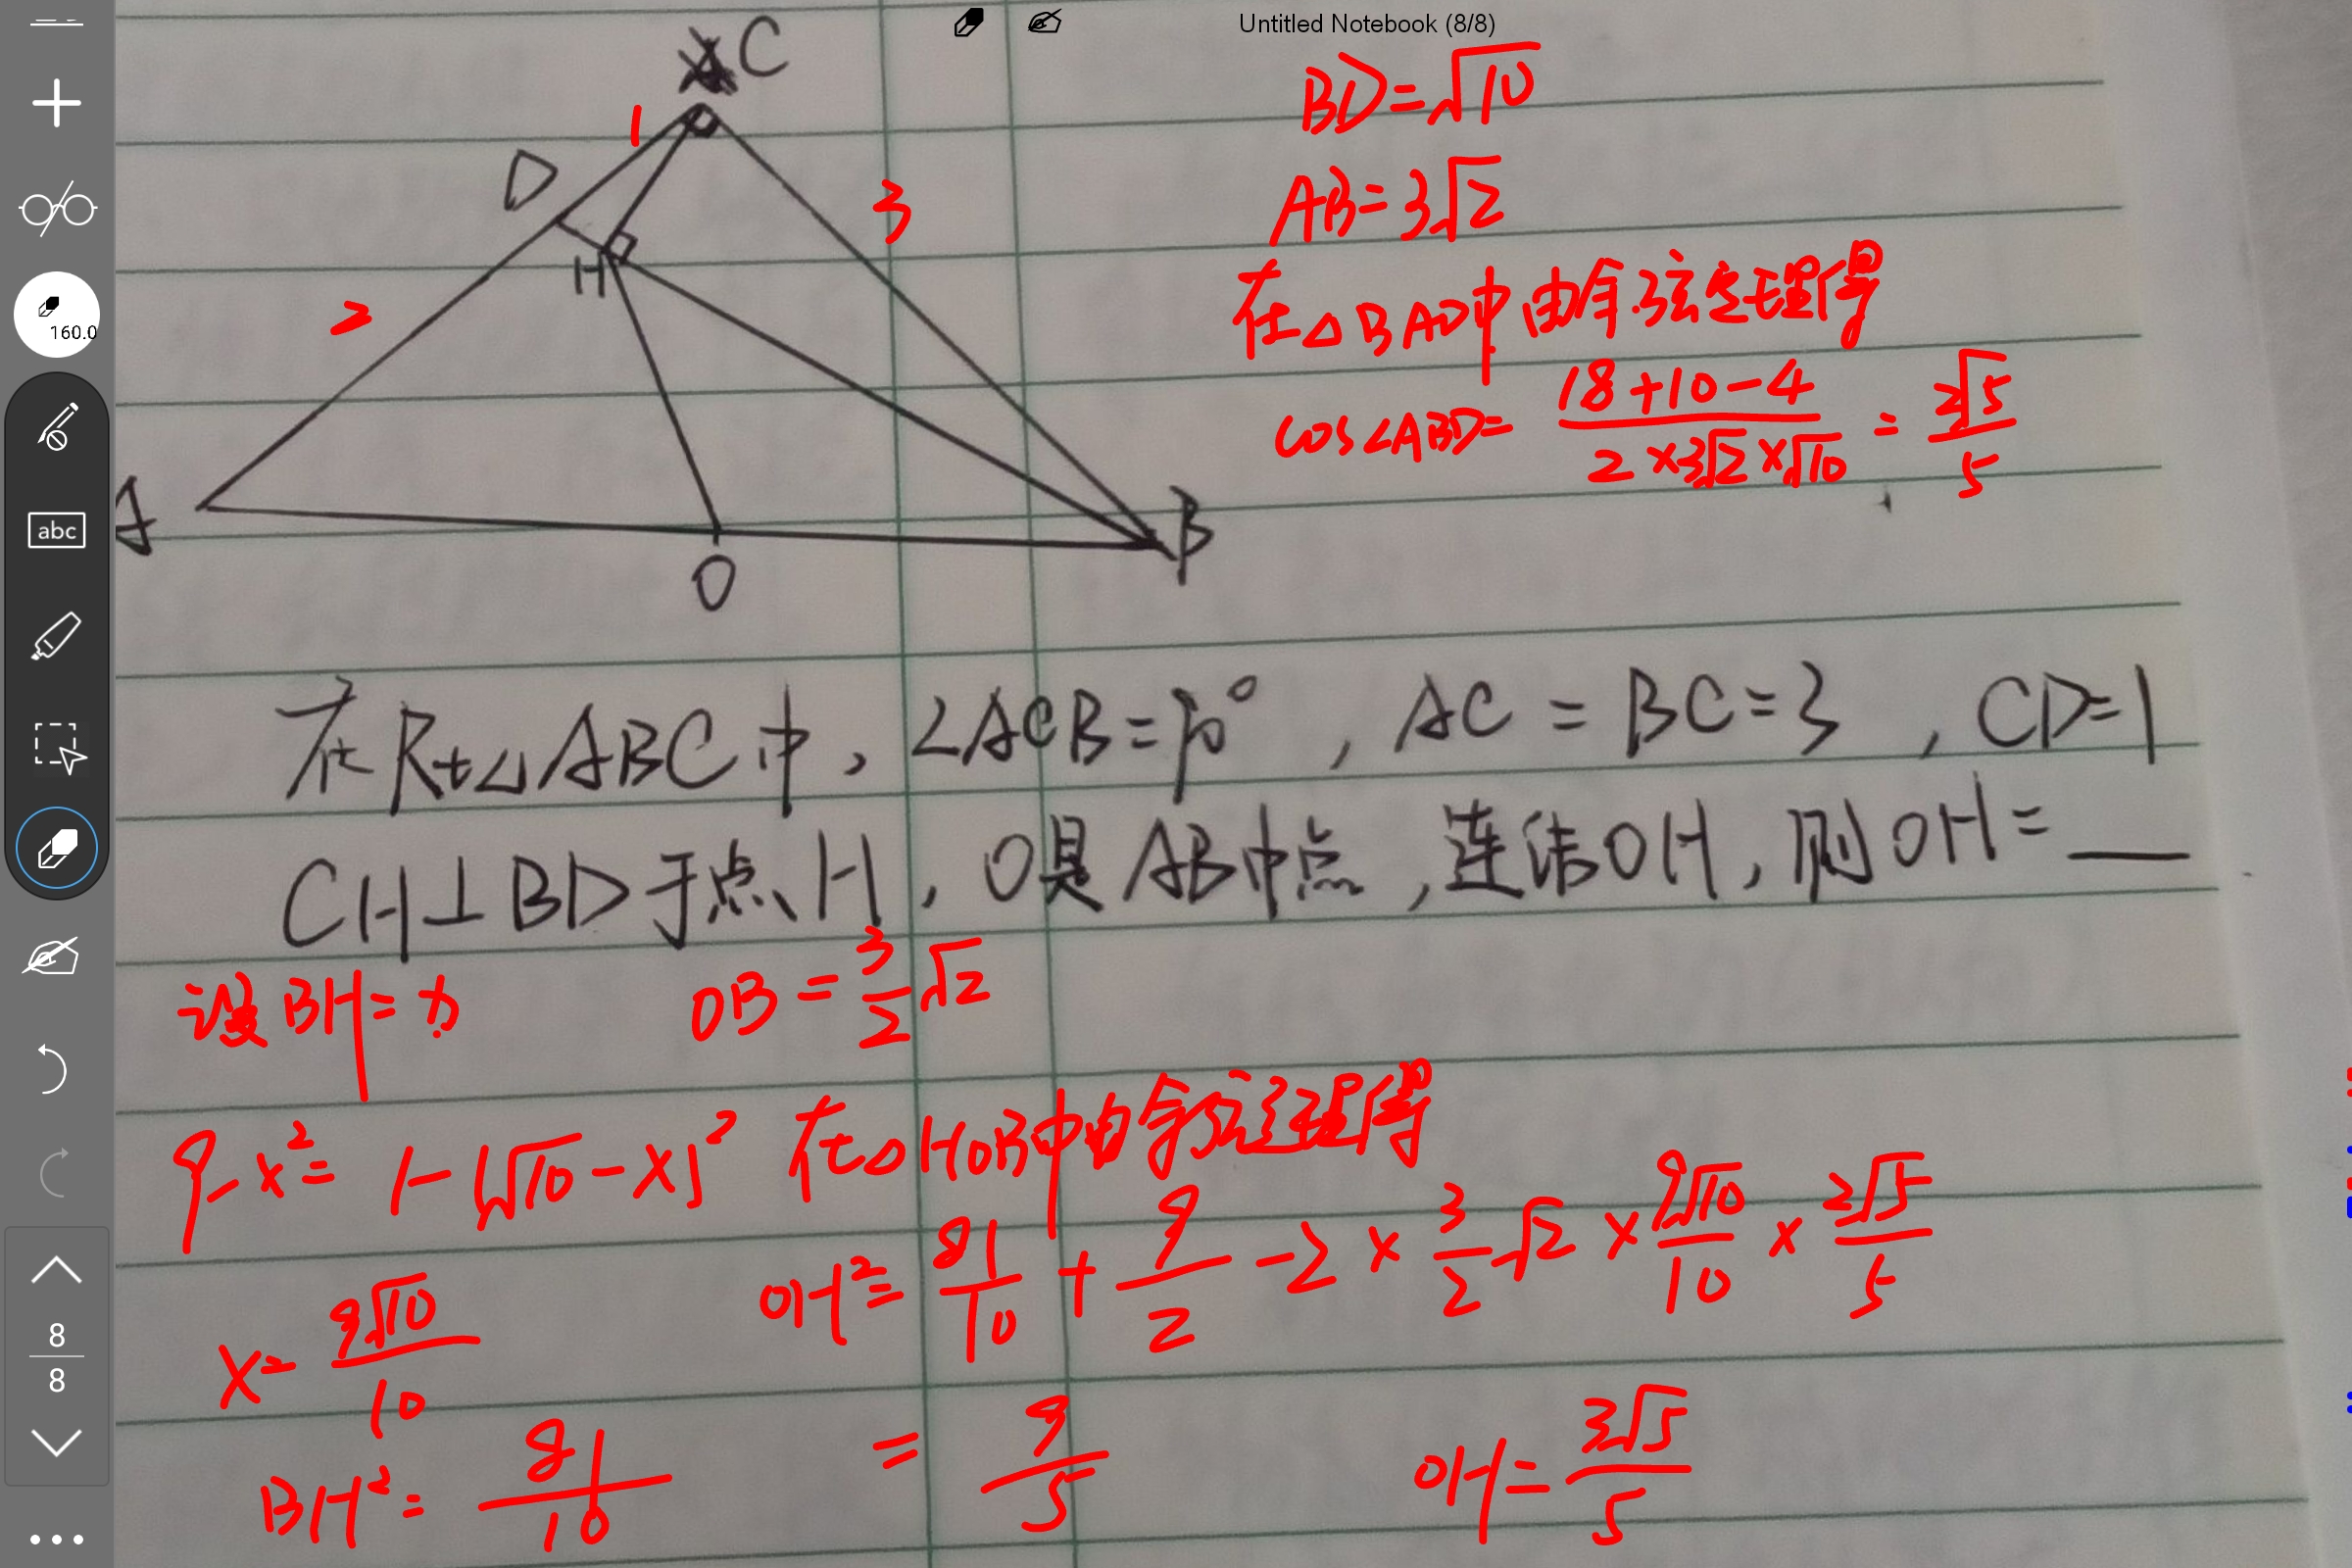 Untitled Notebook (8/8)
160.0
abc
8
8
C
D
H
A
O
B
1
2
3
BD=√10
AB=3√2
在△BAD中由余弦定理得
cos∠ABD= (18+10-4)/(2×3√2×√10) = 2√5/5
在Rt△ABC中,∠ACB=90°,AC=BC=3,CD=1
CH⊥BD于点H,O是AB中点,连结OH,则OH=___
设BH=x
OB=3/2√2
9-x²=1-(√10-x)²
在△HOB中由余弦定理得
OH²=81/10+9/2-2×3/2√2×9√10/10×2√5/5
x=9√10/10
BH²=81/10
=9/5
OH=3√5/5